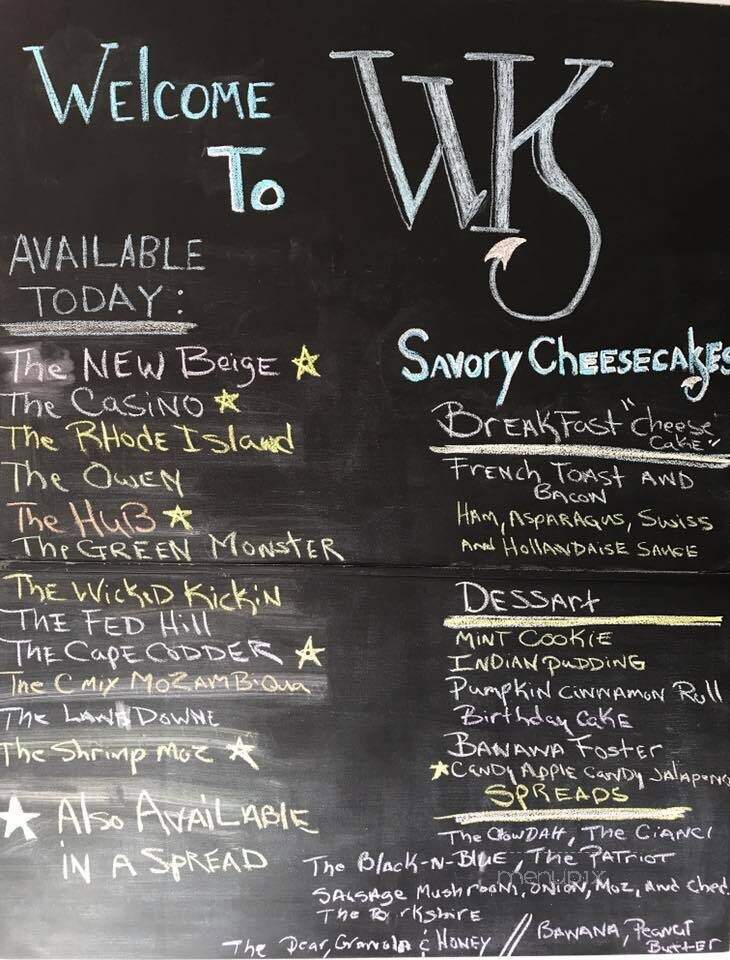 WELCOME
To
WK
AVAILABLE
TODAY:
The NEW Beige ☆
The CASINO ☆
The RHode Island
The OWEN
The HuB ☆
The GREEN MONSTER
THE WickeD KickiN
THE FED Hill
THE CAPE CODDER ☆
The C Mix MOZAMBiQua
The LANSDOWNE
The Shrimp Moz ☆
★ Also AVAiLABlE
iN A SPREAD
SAVORY CHEESECAKES
BREAKFAST "cheese
CAKE"
FRENCH TOAST AND
BACON
HAM, ASPARAGUS, SWISS
AND HOLLANDAISE SAUCE
DESSArt
MINT COOKIE
INDIAN PUDDING
Pumpkin CiNNAMON Roll
Birthday CAKE
BANANA FOSTER
★CANDY APPLE CANDY JALAPENO
SPREADS
The CHOWDAH, The CiANCi
The BlAck-N-BlUE, The PATRIOT
SAUSAGE MushrooM, ONiON, Moz, And Ched.
The Yorkshire
The Pear, Granola & HONEY // BANANA, PEANUT
BUTTER
menupix